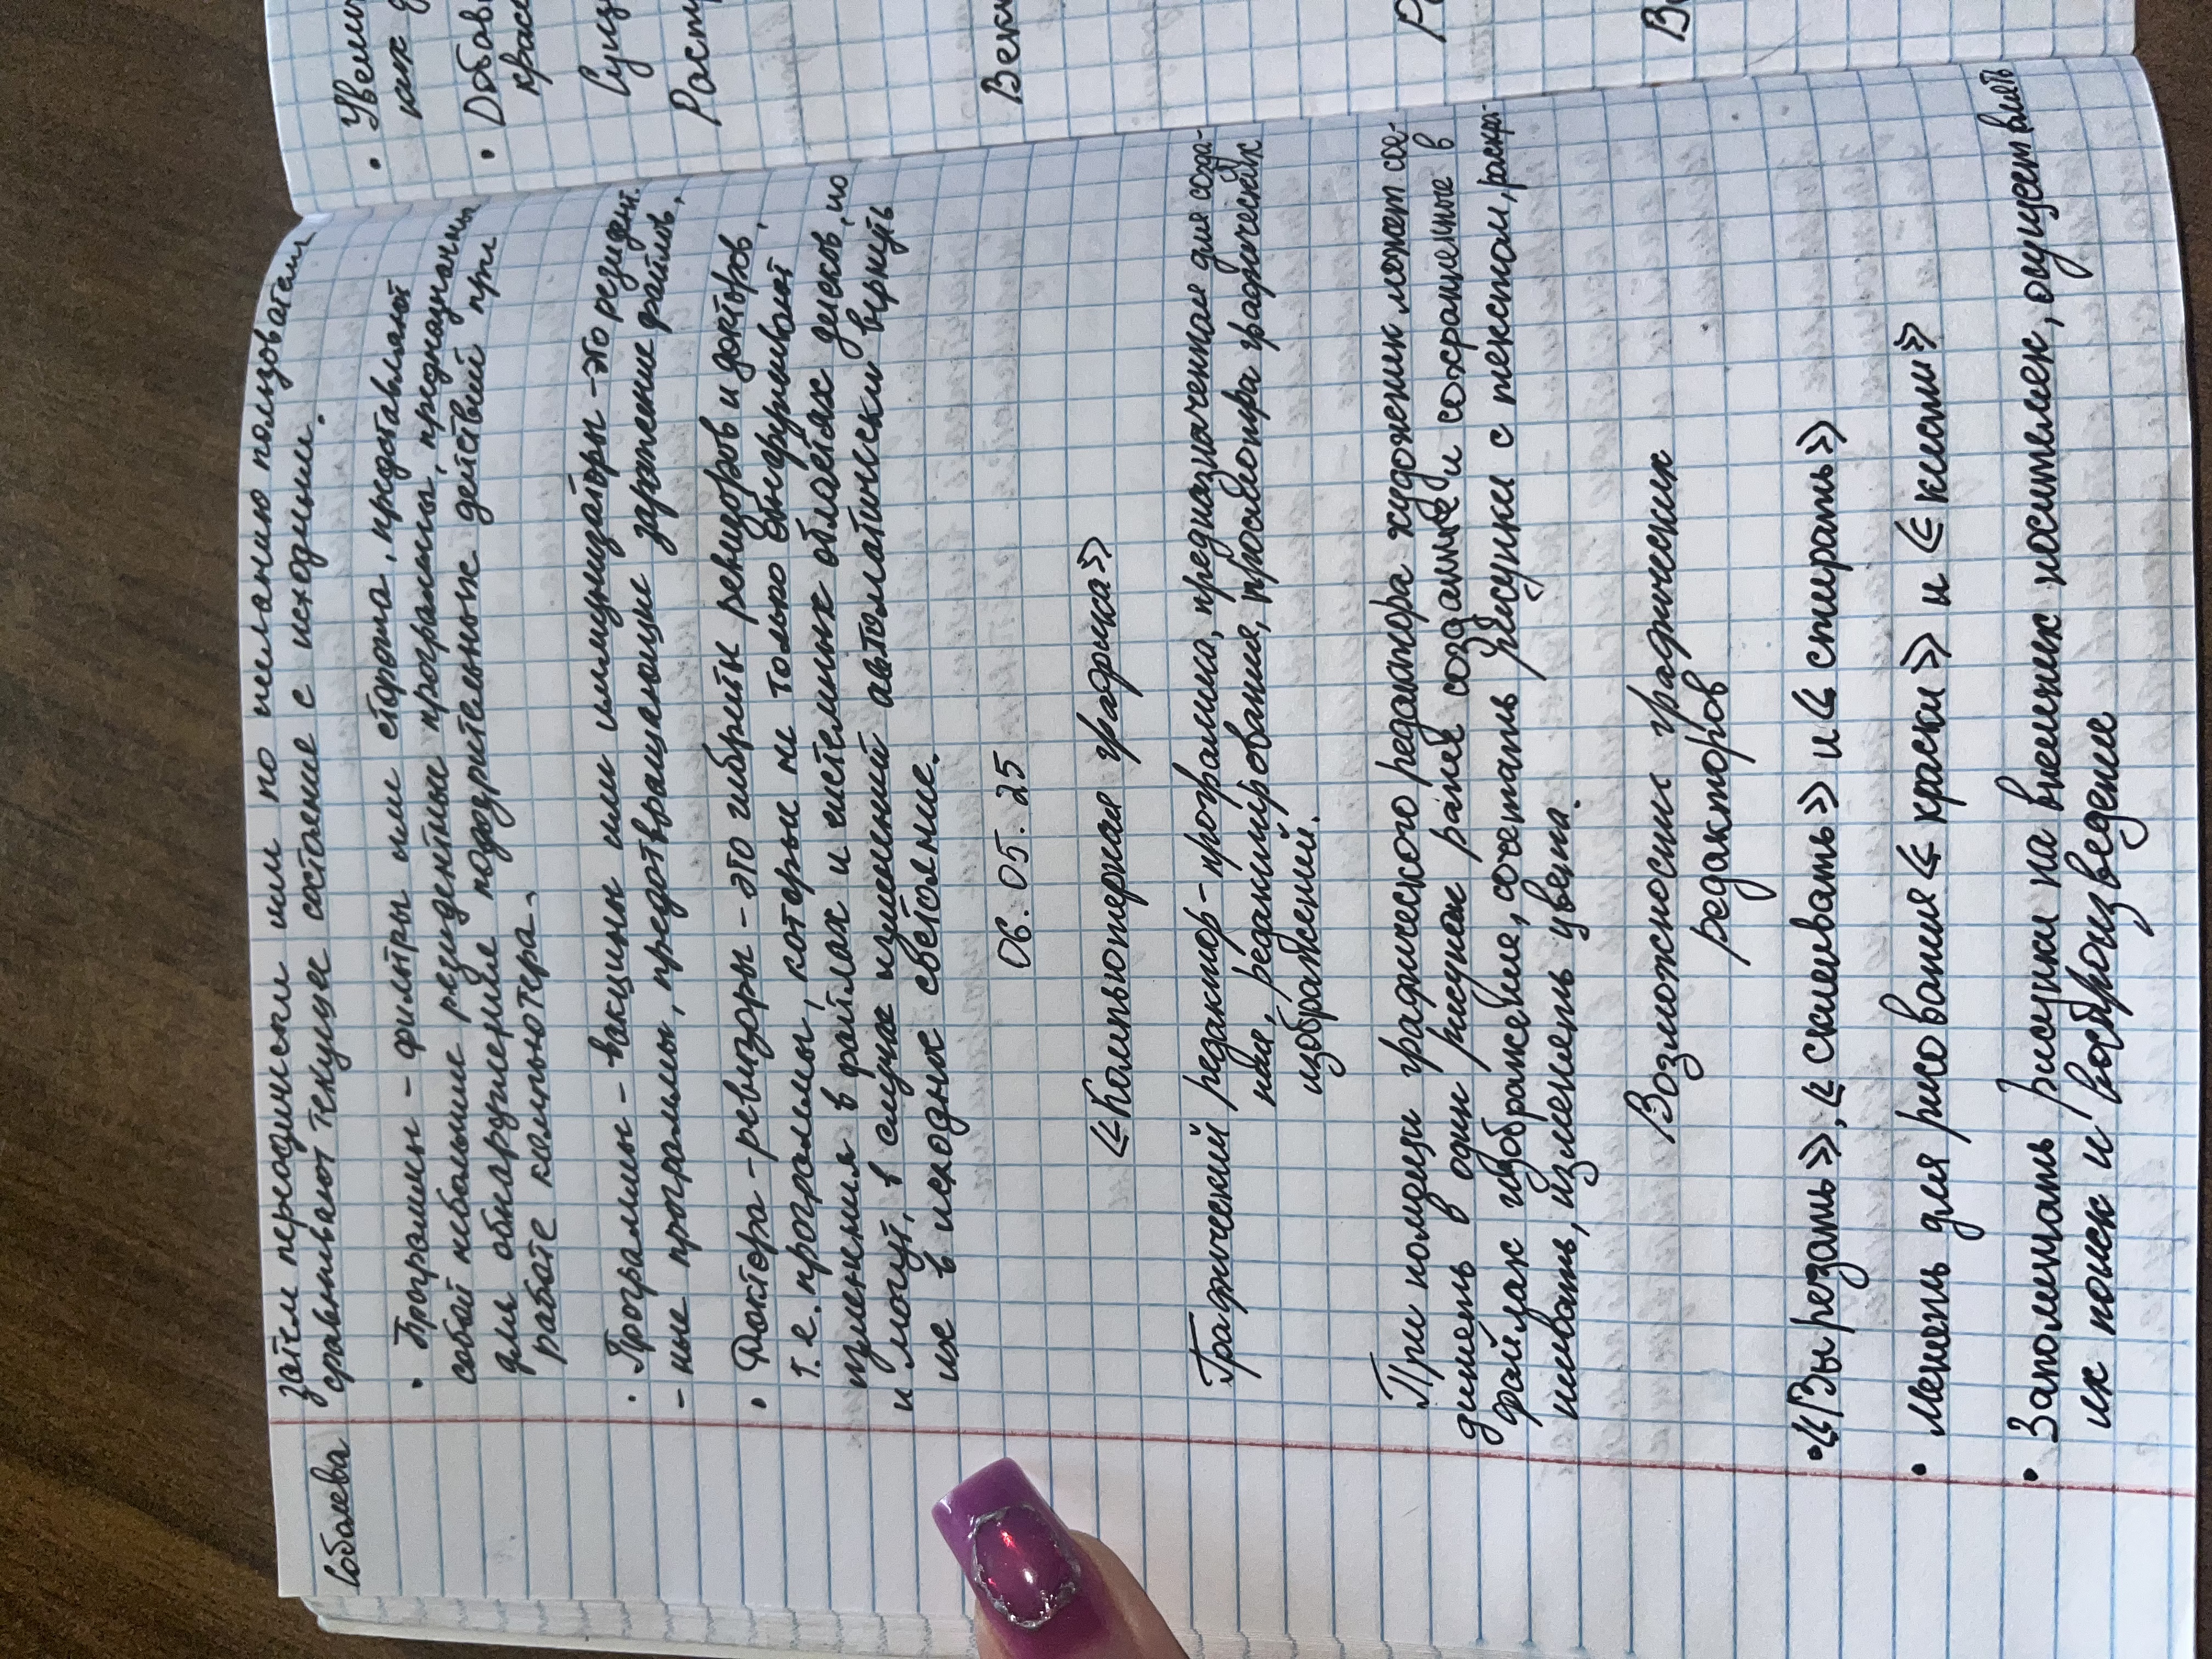 Соболева
затем периодически или по желанию пользователя
сравнивают текущее состояние с исходным.
• Программы - фильтры или сторожа, представляют
собой небольшие резидентные программы, предназначены
для обнаружение подозрительных действий при
работе компьютера.
• Программы - вакцины или иммунизаторы - это резидент.
- ные программы, предотвращающие заражение файлов.
• Доктора - ревизоры - это гибриты ревизоров и докторов,
т.е. программы, которые не только обнаруживают
изменения в файлах и системных областях дисков, но
и могут, в случае изменений автоматически вернуть
их в исходное состояние.
06.05.25
«Компьютерная графика»
Графический редактор - программа, предназначенная для созда-
ния, редактирования, просмотра графических
изображений.
При помощи графического редактора художник может сое-
динять в один рисунок ранее созданные и сохраненные в
файлах изображение, сочетать рисунки с текстом,
изменять цвета.
Возможности графических
редакторов
• «Вырезать», «склеивать» и «стирать»
• Менять для рисования «краски» и «кисти»
• Запоминать рисунки на внешних носителях, осуществлять
их поиск и воспроизведение
•
как
• Добав
крас
Сущ
Раст
Век